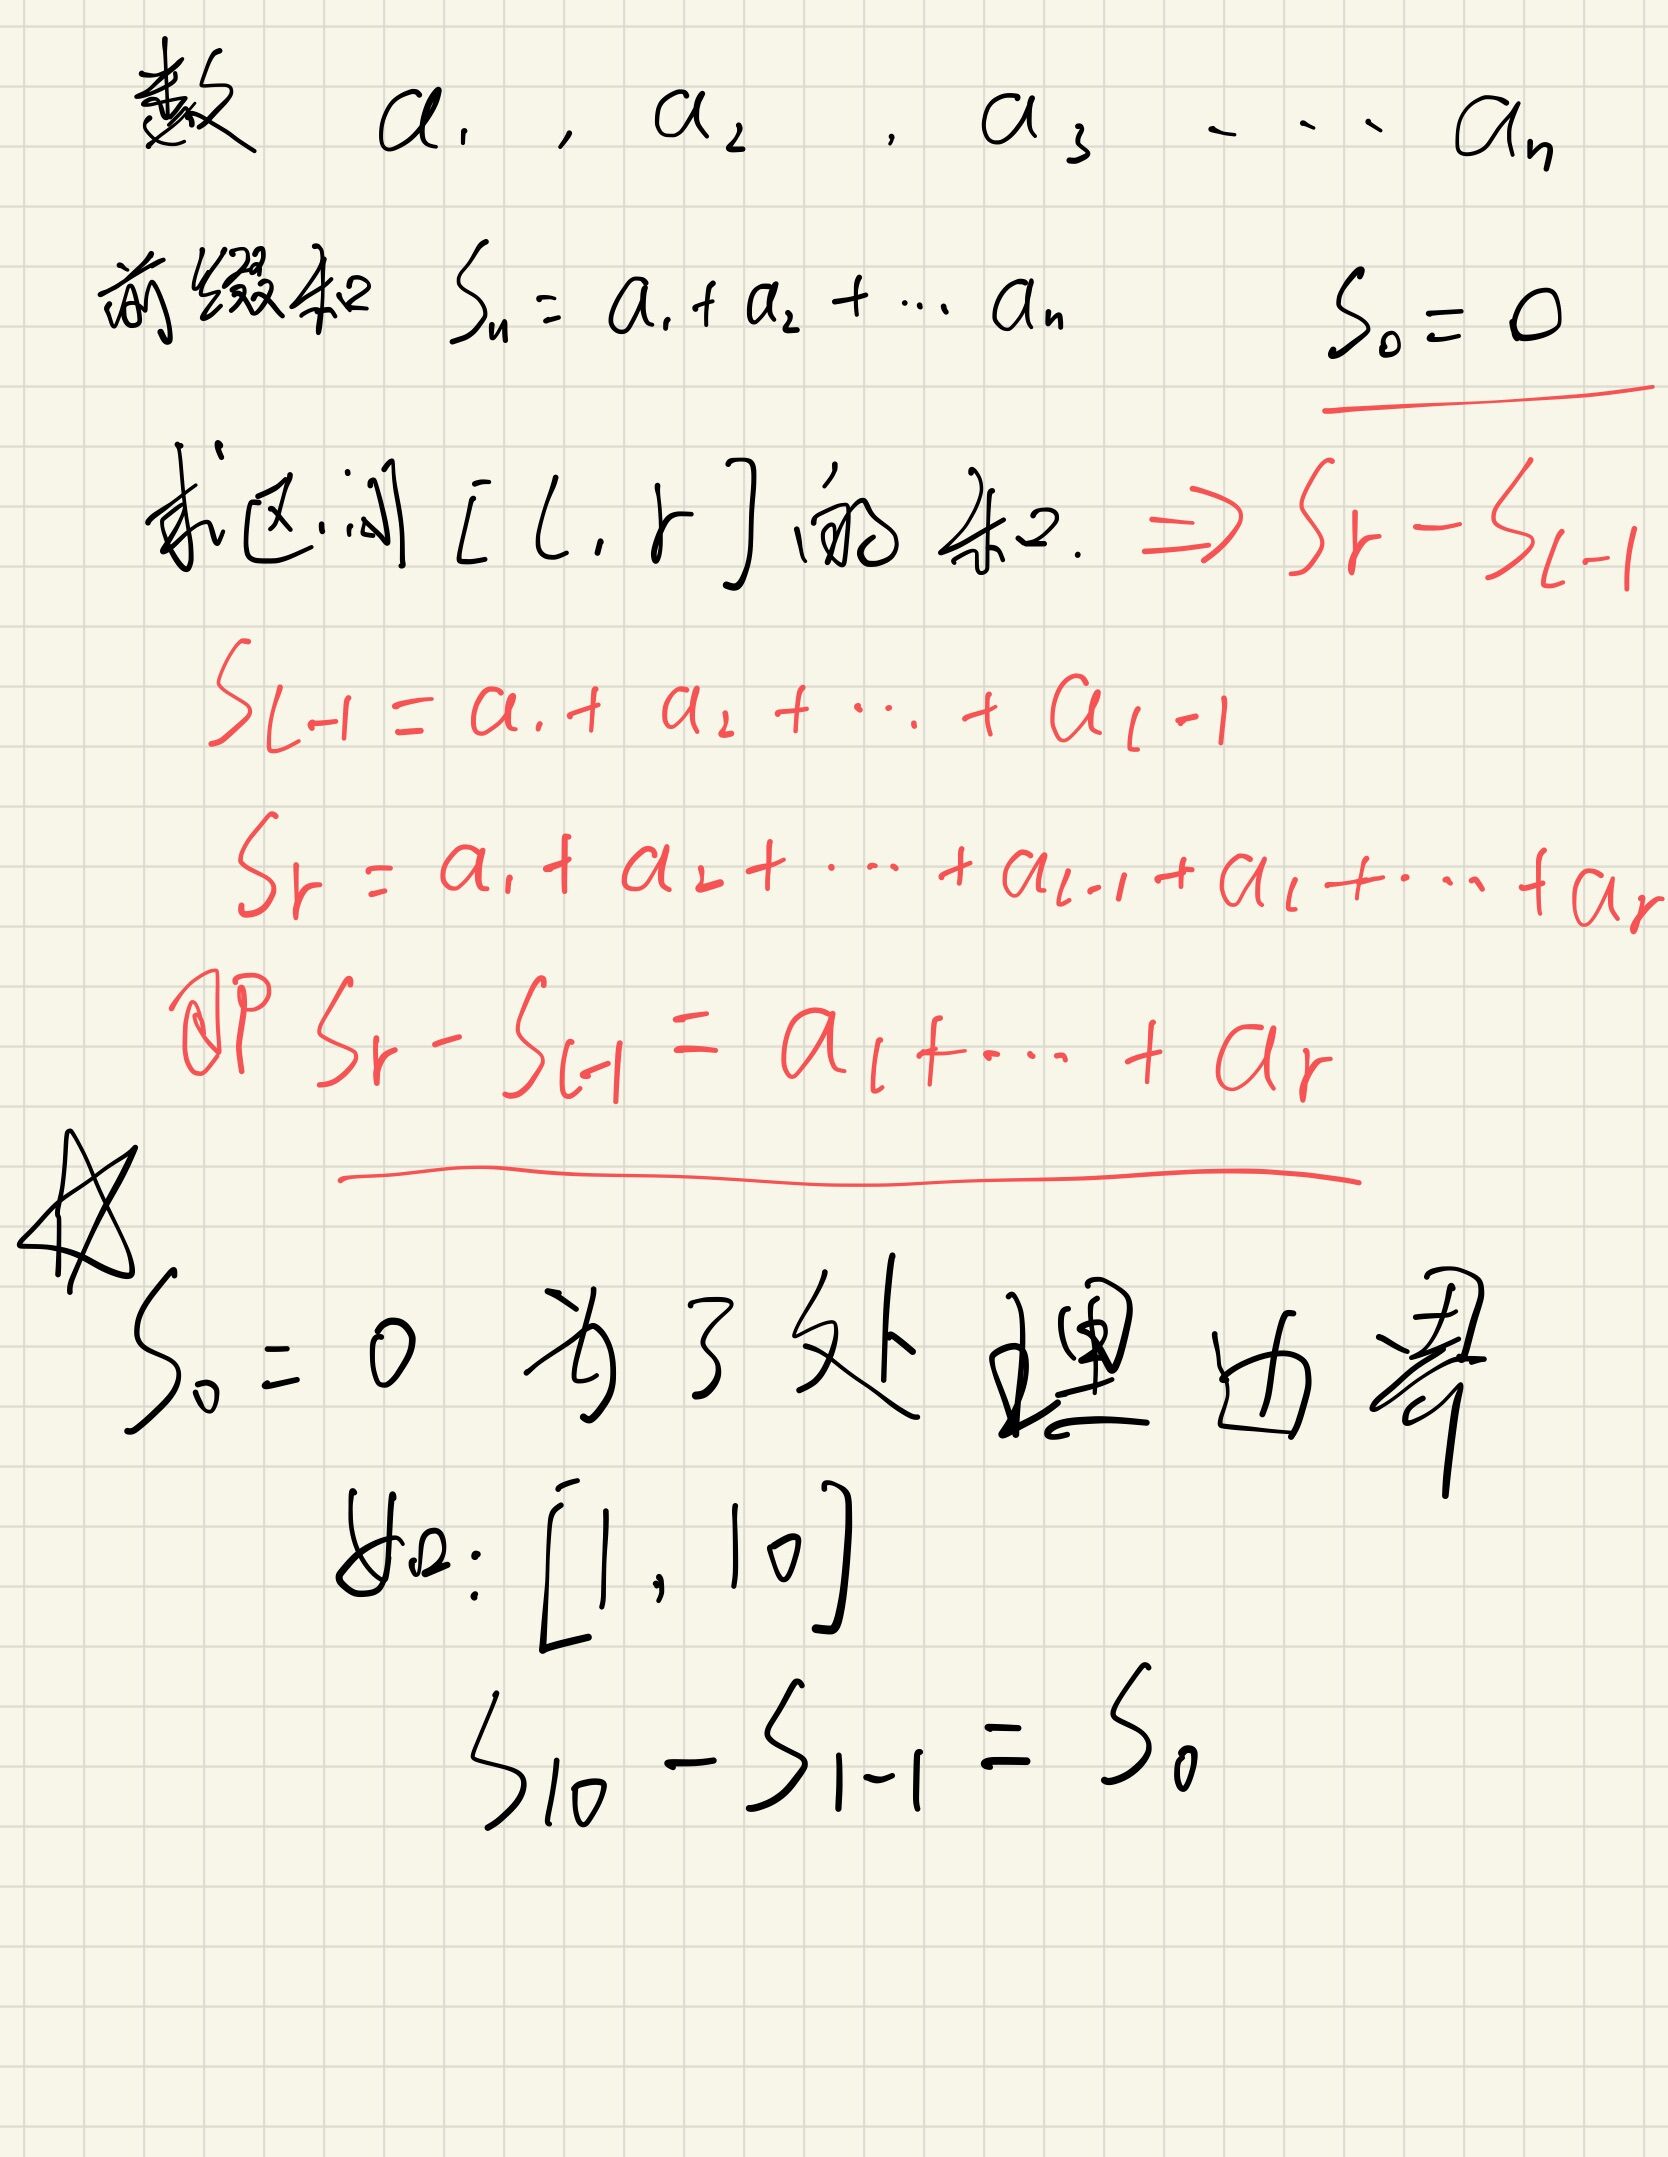 数 a₁ , a₂ , a₃ ... aₙ
前缀和 Sₙ = a₁ + a₂ + ... aₙ S₀ = 0
求区间 [l, r] 的和. ⇒ Sᵣ - Sₗ₋₁
Sₗ₋₁ = a₁ + a₂ + ... + aₗ₋₁
Sᵣ = a₁ + a₂ + ... + aₗ₋₁ + aₗ + ... + aᵣ
即 Sᵣ - Sₗ₋₁ = aₗ + ... + aᵣ
S₀ = 0 为了处理边界
如: [1, 10]
S₁₀ - S₁₋₁ = S₀